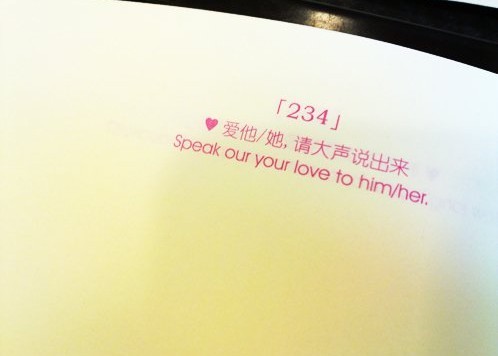 「234」
♥ 爱他/她, 请大声说出来
Speak our your love to him/her.